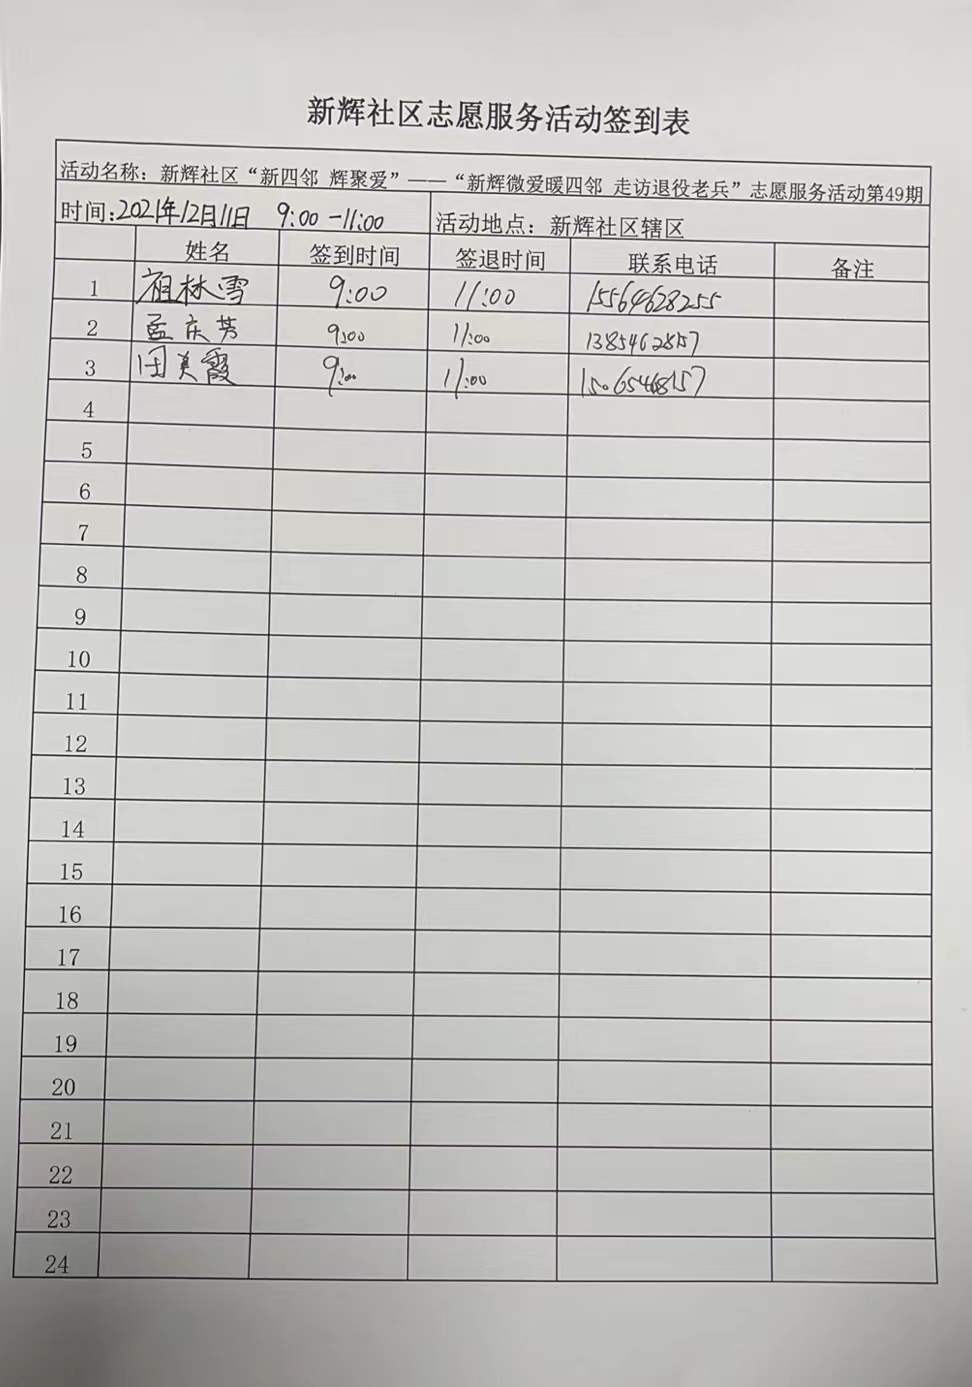 新辉社区志愿服务活动签到表
活动名称：新辉社区“新四邻 辉聚爱”——“新辉微爱暖四邻 走访退役老兵”志愿服务活动第49期
时间:2021年12月11日 9:00-11:00 活动地点：新辉社区辖区
姓名 签到时间 签退时间 联系电话 备注
1 祖林雪 9:00 11:00 15564628255
2 孟庆芳 9:00 11:00 13854628157
3 闫美霞 9:00 11:00 15065468157
4
5
6
7
8
9
10
11
12
13
14
15
16
17
18
19
20
21
22
23
24